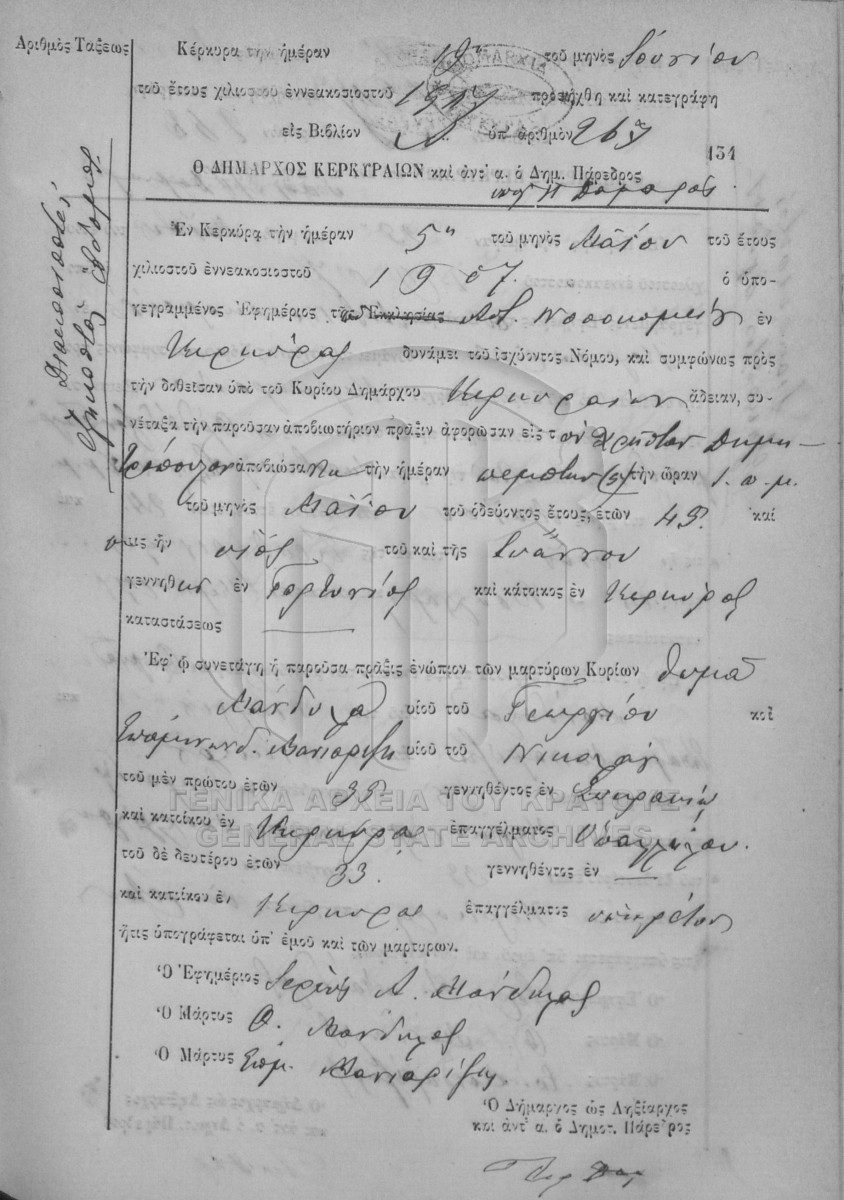 Ἀριθμὸς Τάξεως
Κέρκυρα τὴν ἡμέραν 19η τοῦ μηνὸς Ἰουνίου
τοῦ ἔτους χιλιοστοῦ ἐννεακοσιοστοῦ 1907 προσήχθη καὶ κατεγράφη
εἰς Βιβλίον Α. ὑπ' ἀριθμὸν 267
131
Ο ΔΗΜΑΡΧΟΣ ΚΕΡΚΥΡΑΙΩΝ καὶ ἀντ' α. ὁ Δημ. Πάρεδρος
Διακοσιοστὸς ἑξηκοστὸς ἕβδομος
Ἐν Κερκύρᾳ τὴν ἡμέραν 5η τοῦ μηνὸς Μαΐου τοῦ ἔτους
χιλιοστοῦ ἐννεακοσιοστοῦ 1907. ὁ ὑπο-
γεγραμμένος Ἐφημέριος τῆς Ἐκκλησίας Νοσοκομείου ἐν
Κερκύρας δυνάμει τοῦ ἰσχύοντος Νόμου, καὶ συμφώνως πρὸς
τὴν δοθεῖσαν ὑπὸ τοῦ Κυρίου Δημάρχου Κερκυραίων ἄδειαν, συ-
νέταξα τὴν παροῦσαν ἀποβιωτήριον πρᾶξιν ἀφορῶσαν εἰς τὸν Χρῆστον Δημη-
τρόπουλον ἀποβιώσαντα τὴν ἡμέραν πέμπτην (5) τὴν ὥραν 1. π. μ.
τοῦ μηνὸς Μαΐου τοῦ ὁδεύοντος ἔτους, ἐτῶν 45 καὶ
ὅστις ἦν υἱὸς τοῦ καὶ τῆς Ἰωάννου
γεννηθεὶς ἐν Γορτυνίας καὶ κάτοικος ἐν Κερκύρας
καταστάσεως
Ἐφ' ᾧ συνετάγη ἡ παροῦσα πρᾶξις ἐνώπιον τῶν μαρτύρων Κυρίων Θωμᾶ
Μάνδυλα υἱοῦ τοῦ Γεωργίου καὶ
Ἐπαμεινώνδ. υἱοῦ τοῦ Νικολάου
τοῦ μὲν πρώτου ἐτῶν 35 γεννηθέντος ἐν
καὶ κατοίκου ἐν Κερκύρας ἐπαγγέλματος ὑπαλλήλου.
τοῦ δὲ δευτέρου ἐτῶν 33. γεννηθέντος ἐν "
καὶ κατοίκου ἐν Κερκύρας ἐπαγγέλματος ὑπηρέτου
ἥτις ὑπογράφεται ὑπ' ἐμοῦ καὶ τῶν μαρτύρων.
Ὁ Ἐφημέριος Ἱερεὺς Α. Μάνδυλας
Ὁ Μάρτυς Θ. Μάνδυλας
Ὁ Μάρτυς Ἐπαμ.
Ὁ Δήμαρχος ὡς Ληξίαρχος
καὶ ἀντ' α. ὁ Δημοτ. Πάρεδρος
ΓΕΝΙΚΑ ΑΡΧΕΙΑ ΤΟΥ ΚΡΑΤΟΥΣ
GENERAL STATE ARCHIVES